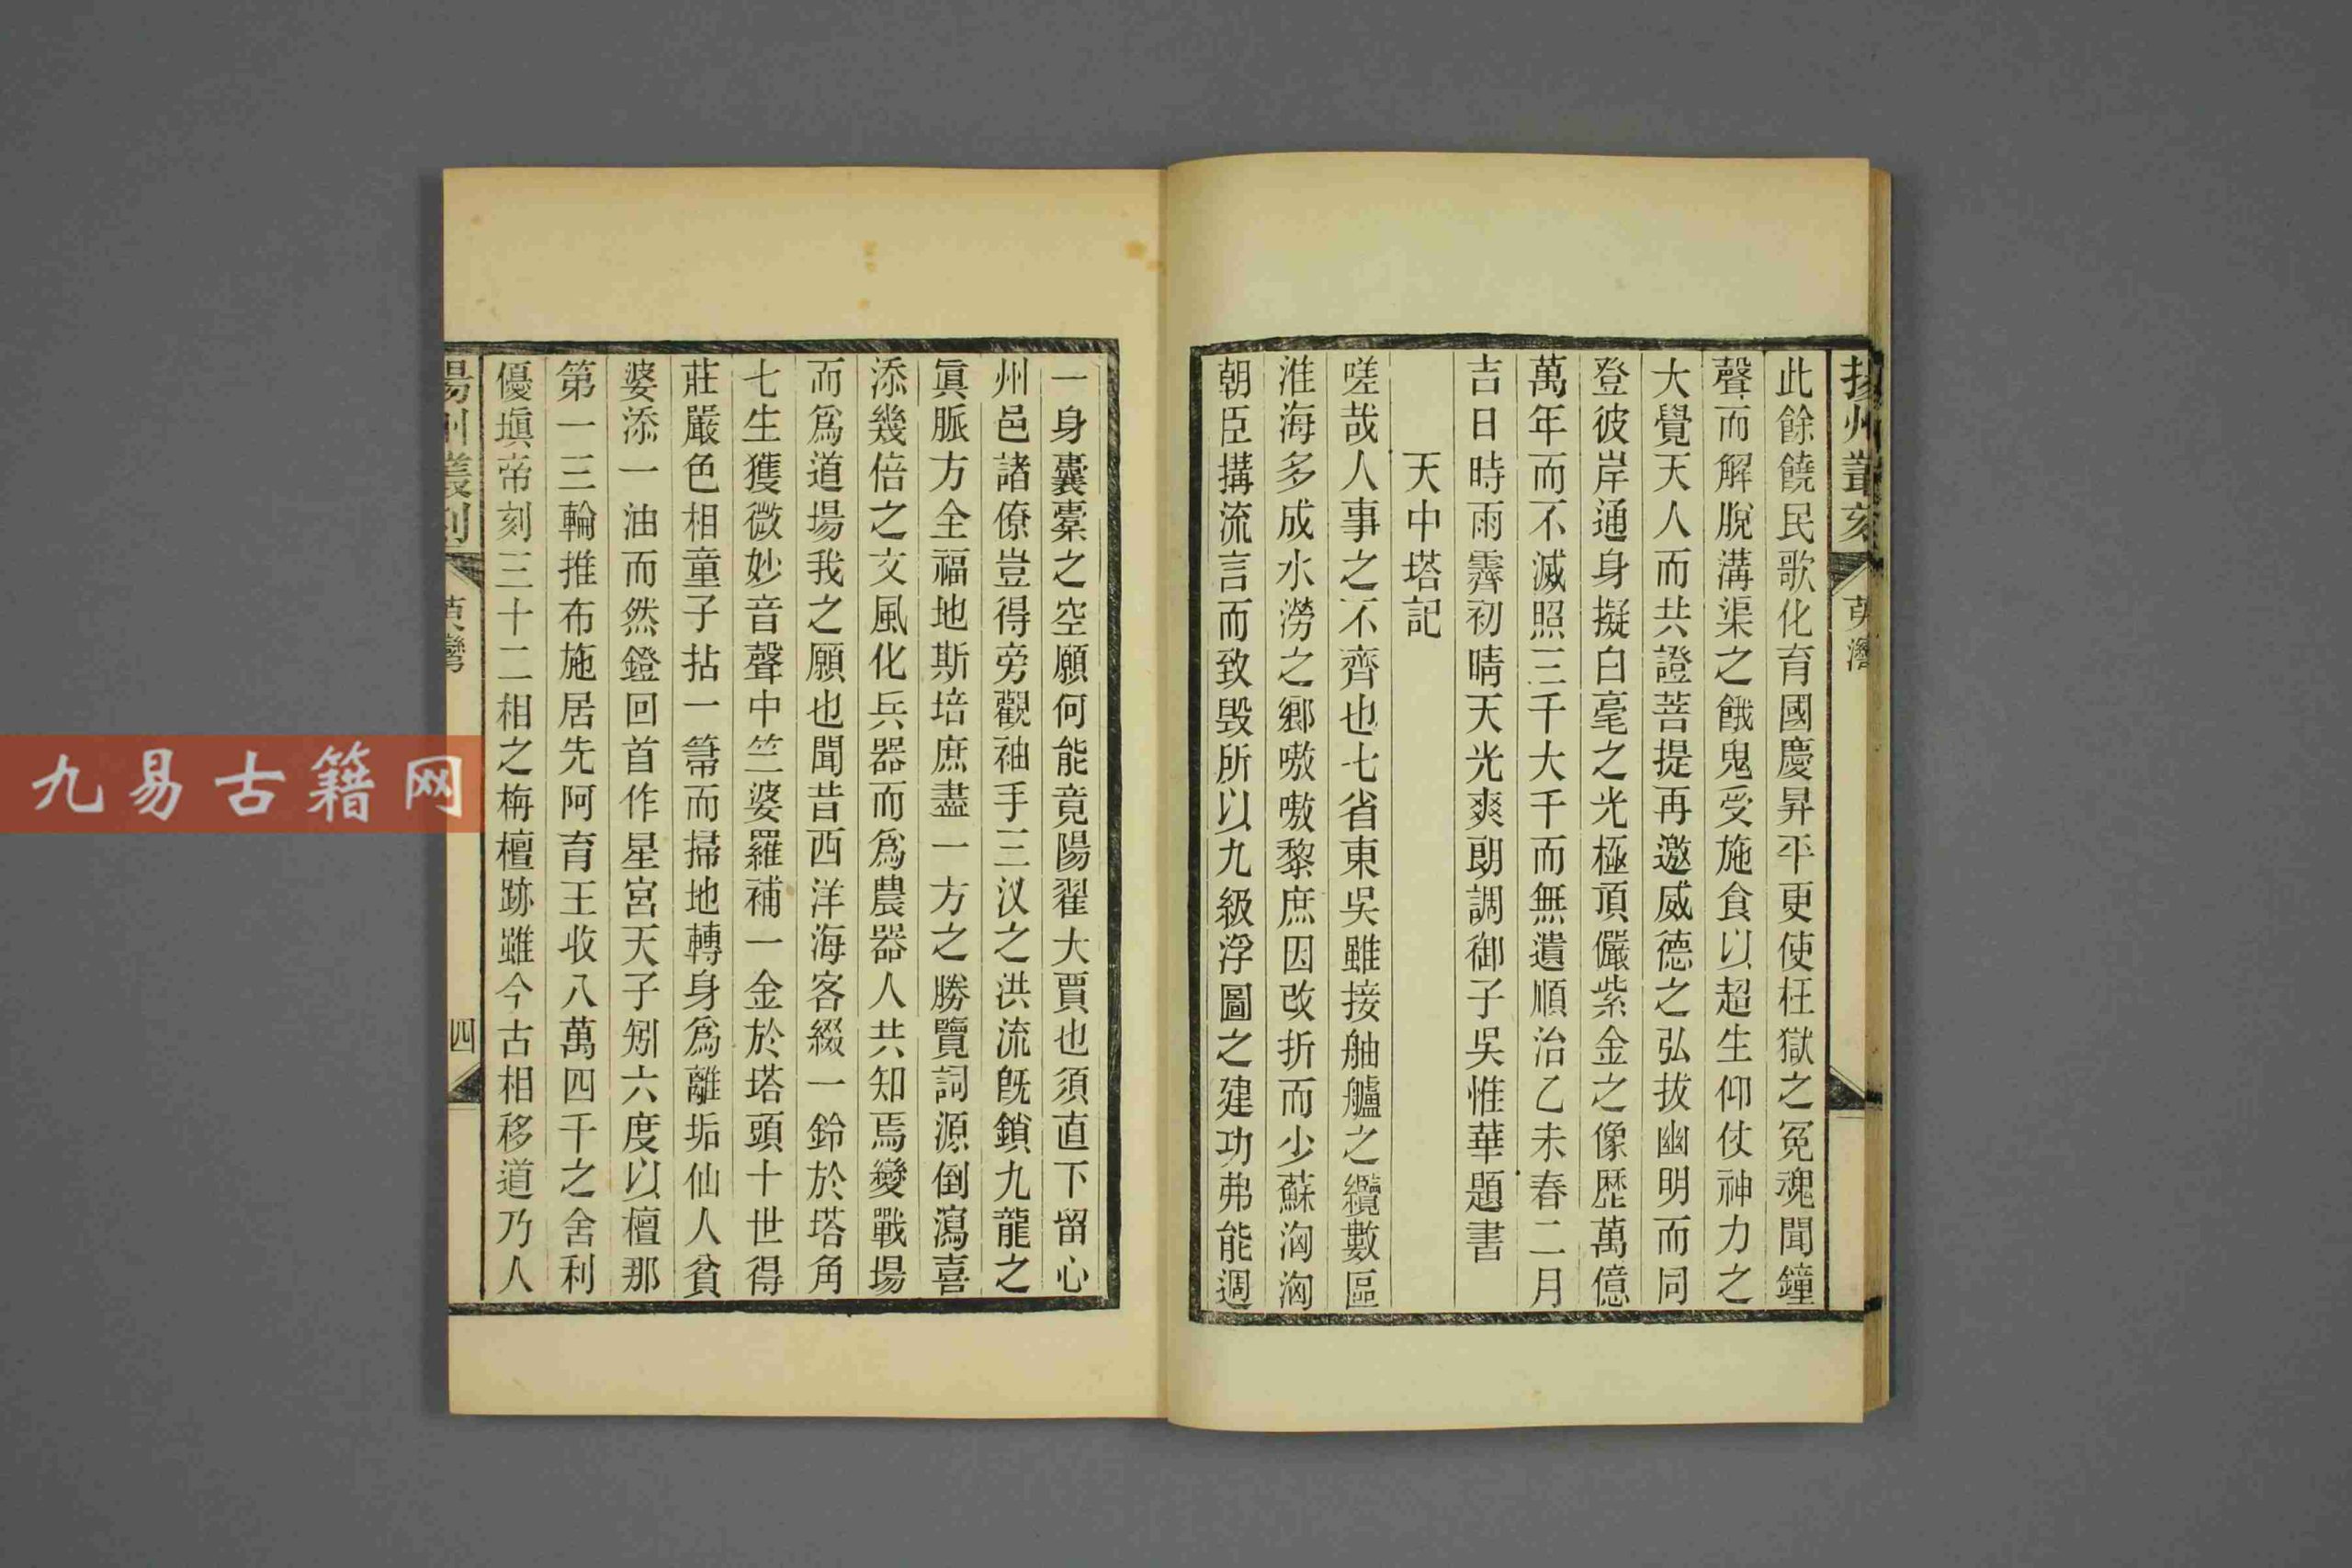 揚州叢刻
茰灣
此餘饒民歌化育國慶昇平更使枉獄之冤魂聞鐘
聲而解脫溝渠之餓鬼受施食以超生仰仗神力之
大覺天人而共證菩提再邀威德之弘拔幽明而同
登彼岸通身擬白毫之光極頂儼紫金之像歷萬億
萬年而不滅照三千大千而無遺順治乙未春二月
吉日時雨霽初晴天光爽朗調御子吳惟華題書
天中塔記
嗟哉人事之不齊也七省東吳雖接舳艫之纜數區
淮海多成水澇之鄉嗷嗷黎庶因改折而少蘇洶洶
朝臣搆流言而致毁所以九級浮圖之建功弗能週
一身囊橐之空願何能竟陽翟大賈也須直下留心
州邑諸僚豈得旁觀袖手三汊之洪流旣鎖九龍之
眞脈方全福地斯培庶盡一方之勝覽詞源倒瀉喜
添幾倍之文風化兵器而爲農器人共知焉變戰場
而爲道場我之願也聞昔西洋海客綴一鈴於塔角
七生獲微妙音聲中竺婆羅補一金於塔頭十世得
莊嚴色相童子拈一箒而掃地轉身爲離垢仙人貧
婆添一油而然鐙回首作星宮天子矧六度以檀那
第一三輪推布施居先阿育王收八萬四千之舍利
優塡帝刻三十二相之栴檀跡雖今古相移道乃人
揚州叢刻
茰灣
四
九易古籍网